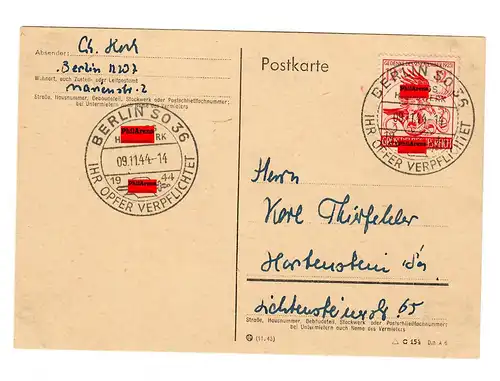 Absender:
Ch. Koch
Berlin N207
Wohnort, auch Zustell- oder Leitpostamt
Marienstr. 2
Straße, Hausnummer, Gebäudeteil, Stockwerk oder Postschließfachnummer;
bei Untermietern auch Name des Vermieters
BERLIN SO 36
PhilArena
09.11.44-14
19 44
PhilArena
IHR OPFER VERPFLICHTET
Postkarte
BERLIN SO 36
PhilArena
09.11.44-14
PhilArena
IHR OPFER VERPFLICHTET
Herrn
Karl Thürfelder
Hartenstein
Lichtensteinerstr. 65
Straße, Hausnummer, Gebäudeteil, Stockwerk oder Postschließfachnummer;
bei Untermietern auch Name des Vermieters
(11.43)
C 154 Din A 6